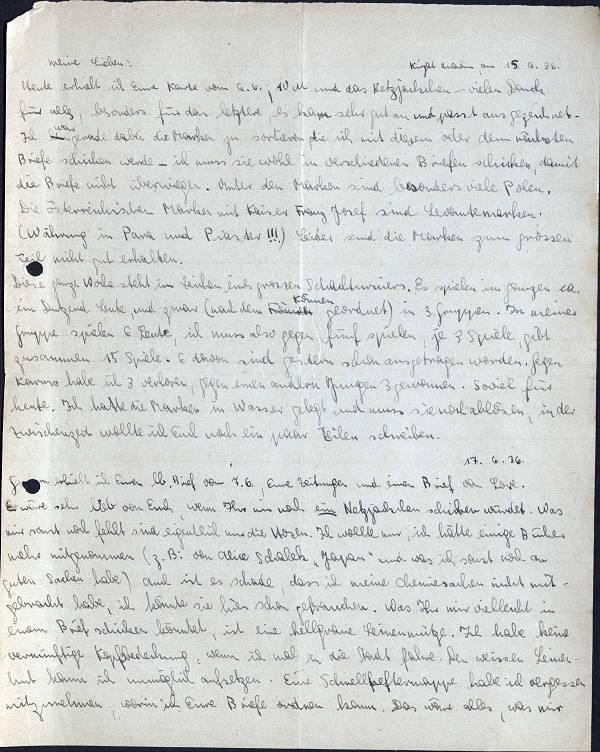 meine Lieben! Kirjat Anavim, am 15.6.36.
Heute erhielt ich Eure Karte vom 6.6., 10 M und das Netzjäckchen – vielen Dank
für alles, besonders für das letztere, es kam sehr gut an und passt ausgezeichnet.
Ich war gerade dabei die Marken zu sortieren, die ich mit diesem oder dem nächsten
Briefe schicken werde – ich muss sie wohl in verschiedenen Briefen schicken, damit
die Briefe nicht überwiegen. Unter den Marken sind besonders viele Polen.
Die österreichischen Marken mit Kaiser Franz Josef sind Levantemarken.
(Währung in Para und Piaster!!!) Leider sind die Marken zum grossen
Teil nicht gut erhalten.
Diese ganze Woche steht im Zeichen eines grossen Schachturniers. Es spielen im ganzen ca.
ein Dutzend Leute und zwar (nach dem Können geordnet) in 3 Gruppen. In meiner
Gruppe spielen 6 Leute, ich muss also gegen fünf spielen, je 3 Spiele, gibt
zusammen 15 Spiele. 6 davon sind gestern schon ausgetragen worden. Gegen
habe ich 3 verloren, gegen einen anderen Jungen 3 gewonnen. Soviel für
heute. Ich hatte die Marken in Wasser gelegt und muss sie noch ablösen, in der
Zwischenzeit wollte ich Euch noch ein paar Zeilen schreiben.
17.6.36.
Gestern erhielt ich Euren lb. Brief vom 7.6., Eure Zeitungen und einen Brief von
Es wäre sehr lieb von Euch, wenn Ihr mir noch ein Netzjäckchen schicken würdet. Was
mir sonst noch fehlt sind eigentlich nur die Hosen. Ich wollte nur, ich hätte einige Bücher
mehr mitgenommen (z.B. von Alice Schalek „Japan" und was ich sonst noch an
guten Sachen habe) auch ist es schade, dass ich meine Chemiesachen nicht mit-
gebracht habe, ich könnte sie hier schon gebrauchen. Was Ihr mir vielleicht in
einem Brief schicken könntet, ist eine hellgraue Leinenmütze. Ich habe keine
vernünftige Kopfbedeckung, wenn ich mal in die Stadt fahre. Den weissen Leinen-
hut kann ich unmöglich aufsetzen. Eine Schnellheftermappe habe ich vergessen
mitzunehmen, worin ich Eure Briefe ordnen kann. Das wäre alles, was mir